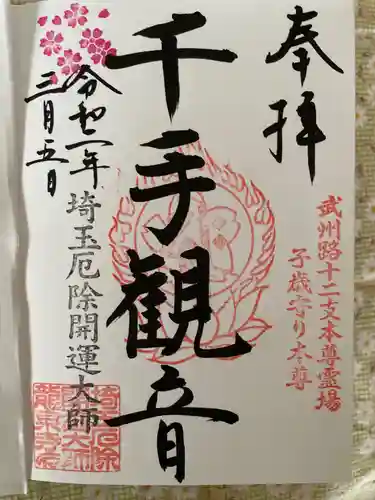 奉拝
武州路十二支本尊霊場
子歳守り本尊
千手観音
令和二年
三月五日
埼玉厄除開運大師
埼玉厄除
龍泉寺